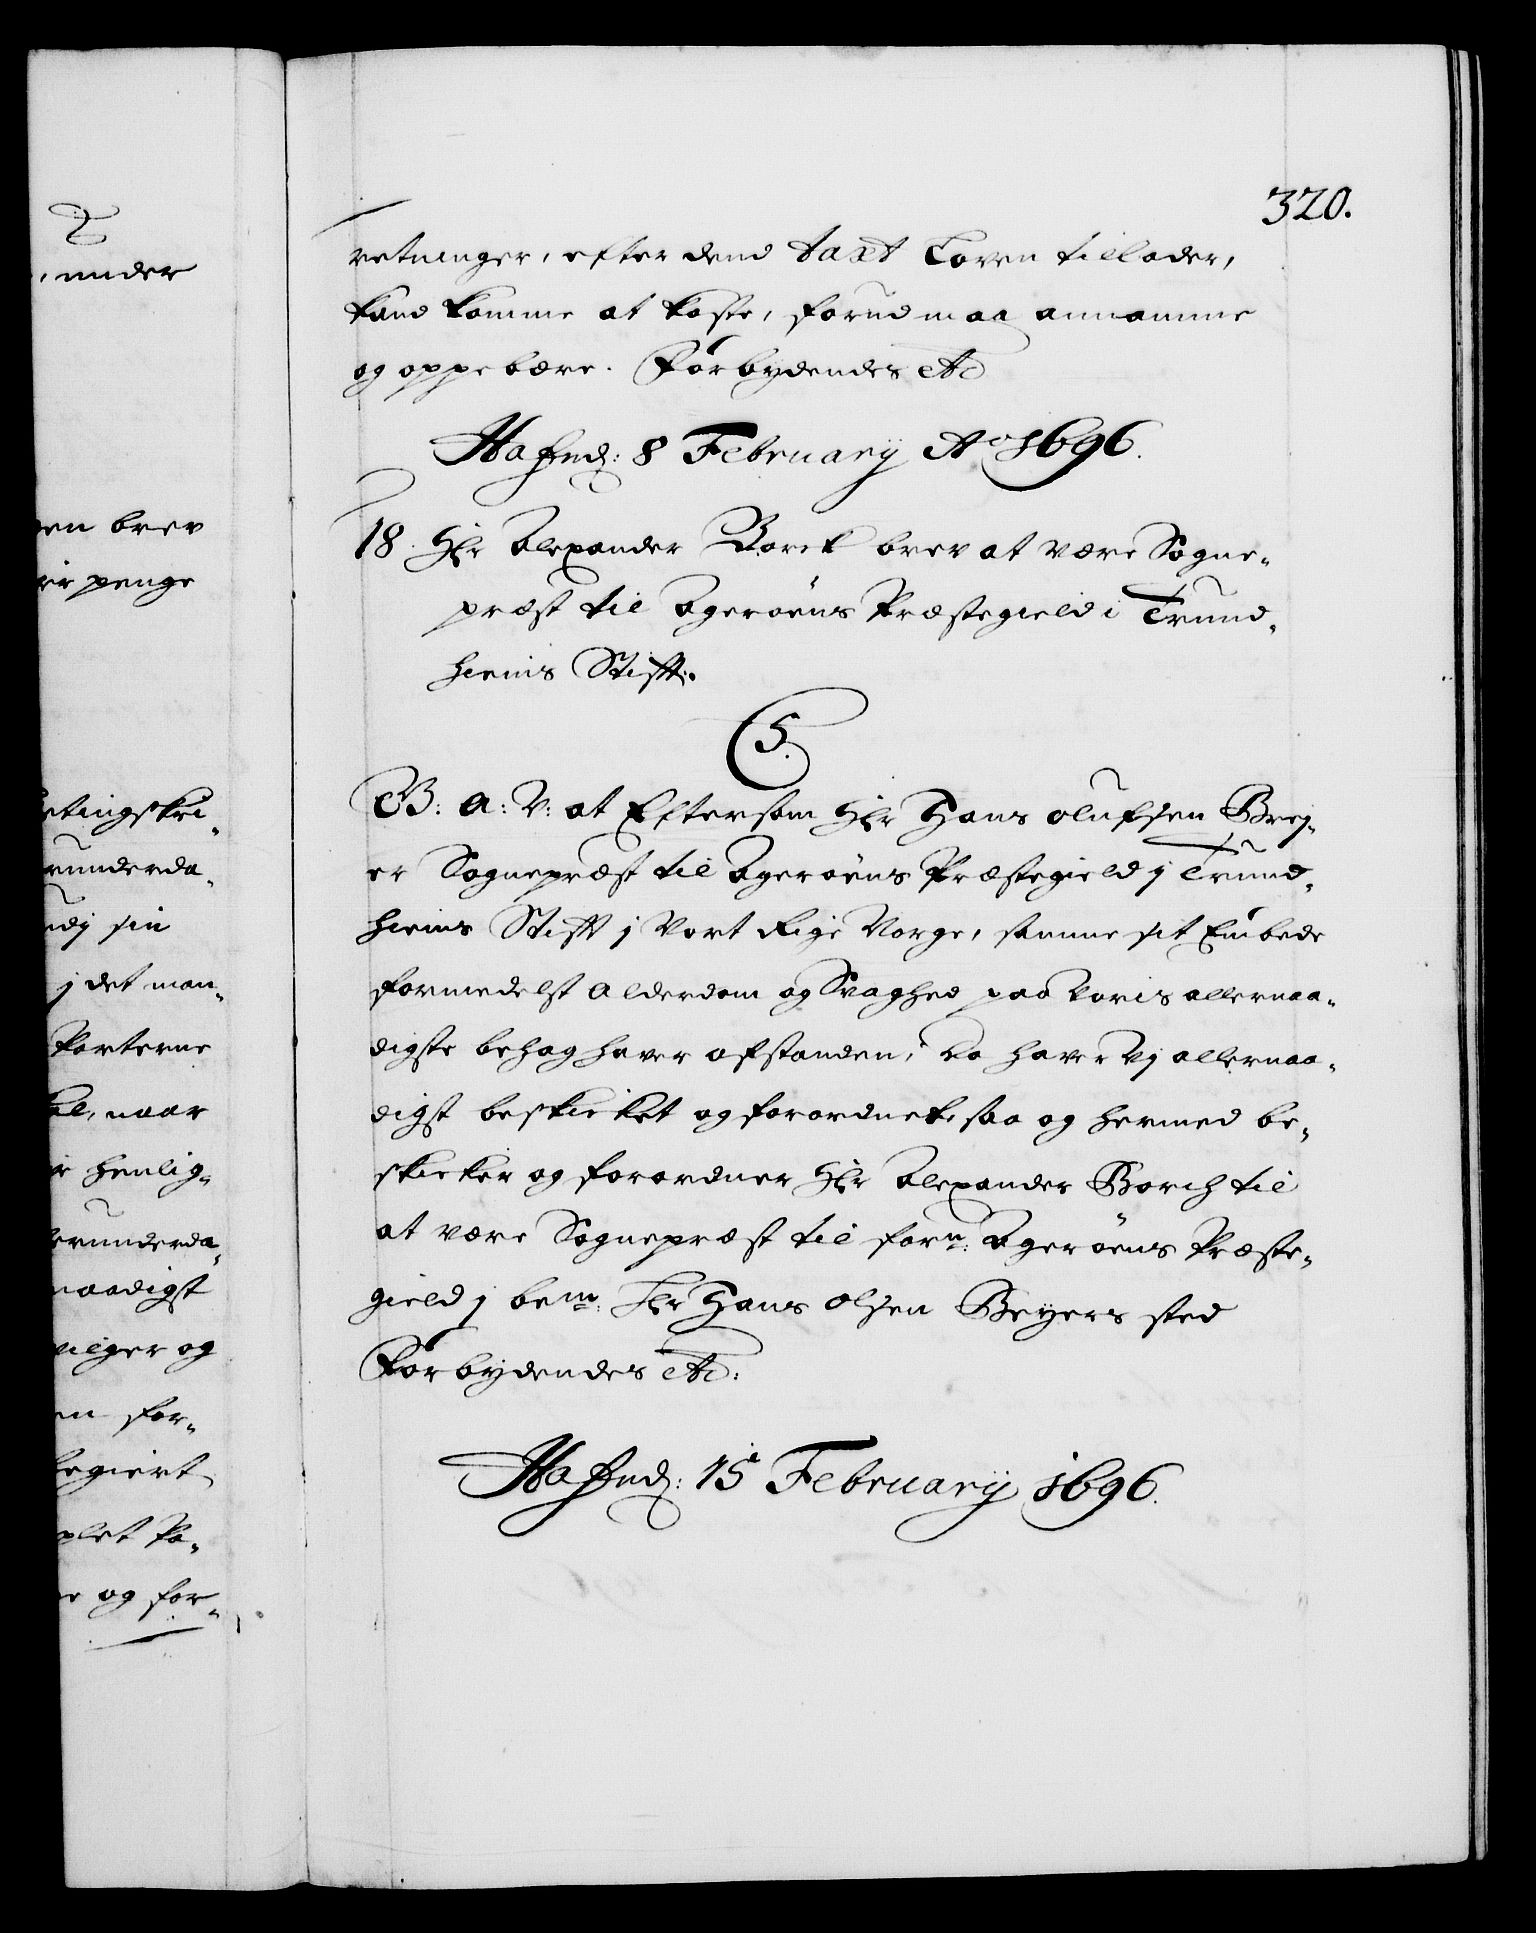 320.
retninger, efter dend taxt Loven tillader,
kand komme at koste, forud maa annamme
og oppebære. Forbydendes Etc
Hafnd: 8 February Ao 1696.
18. Hr Alexander Borck brev at være Sogne-
præst til Agerøens Præstegield i Trund-
hiems Stift.
C5.
G: A: V: at Eftersom Hr Hans Olufsen Bey-
er Sognepræst til Agerøens Præstegield j Trund-
hiems Stift j Vort Rige Norge, samme sit Embede
formedelst Alderdom og Svaghed paa Voris allernaa-
digste behag haver afstanden, Da have Vj allernaa-
digst beskicket og forordnet, saa og hermed be-
skicker og forordner Hr Alexander Borch til
at være Sognepræst til forn: Agerøens Præste-
gield j bem: Hr Hans Olsen Beyers sted
Forbydendes Etc:
Hafnd: 15 February 1696.
, under
en brev
penge
tingskri-
runderda-
sin
j det man-
Parterne
naar
henlig-
erunderda-
naadigst
og
for-
plet Pa-
og for-